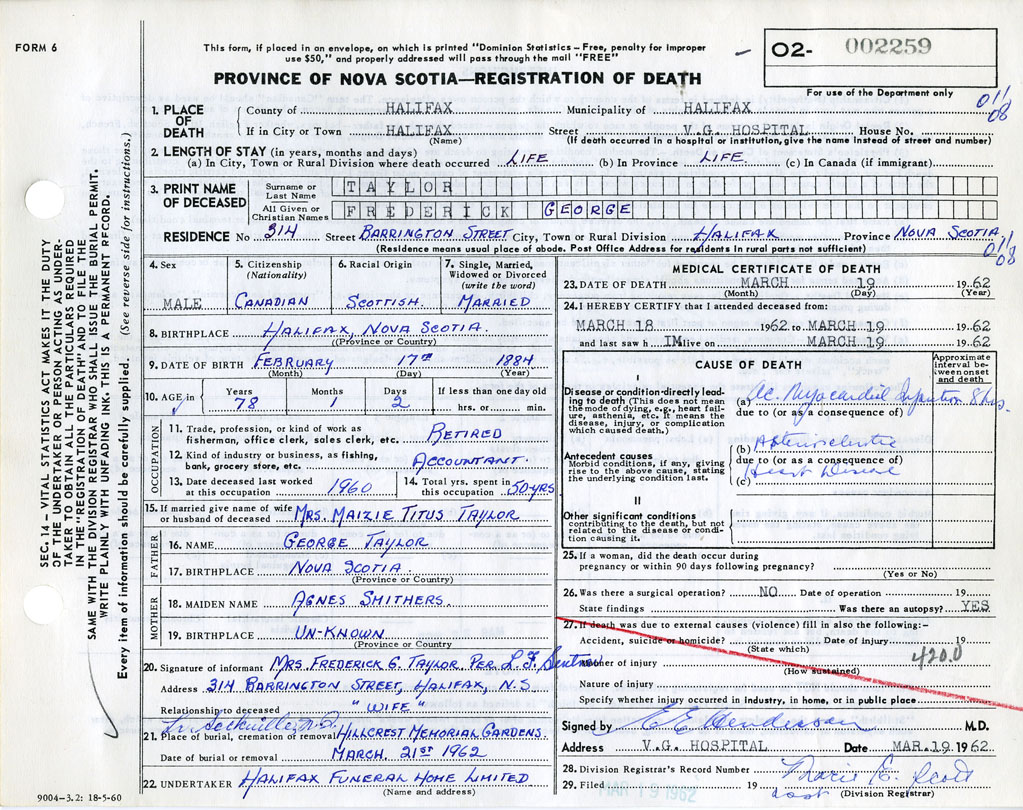 FORM 6
This form, if placed in an envelope, on which is printed "Dominion Statistics – Free, penalty for improper
use $50," and properly addressed will pass through the mail "FREE"
O2- 002259
For use of the Department only
PROVINCE OF NOVA SCOTIA—REGISTRATION OF DEATH
011/08
1. PLACE OF DEATH County of HALIFAX Municipality of HALIFAX
If in City or Town HALIFAX Street V.G. HOSPITAL House No.
(Name) (If death occurred in a hospital or institution, give the name instead of street and number)
2. LENGTH OF STAY (in years, months and days)
(a) In City, Town or Rural Division where death occurred LIFE (b) In Province LIFE (c) In Canada (if immigrant)
3. PRINT NAME OF DECEASED Surname or Last Name TAYLOR
All Given or Christian Names FREDERICK GEORGE
RESIDENCE No 314 Street BARRINGTON STREET City, Town or Rural Division HALIFAX Province NOVA SCOTIA
(Residence means usual place of abode. Post Office Address for residents in rural parts not sufficient)
011/08
4. Sex MALE
5. Citizenship (Nationality) CANADIAN
6. Racial Origin SCOTTISH
7. Single, Married, Widowed or Divorced (write the word) MARRIED
8. BIRTHPLACE HALIFAX, NOVA SCOTIA
(Province or Country)
9. DATE OF BIRTH FEBRUARY 17TH 1884
(Month) (Day) (Year)
10. AGE in Years 78 Months 1 Days 2 If less than one day old hrs. or min.
OCCUPATION
11. Trade, profession, or kind of work as
fisherman, office clerk, sales clerk, etc. RETIRED
12. Kind of industry or business, as fishing,
bank, grocery store, etc. ACCOUNTANT.
13. Date deceased last worked at this occupation 1960
14. Total yrs. spent in this occupation 50 YRS
15. If married give name of wife or husband of deceased MRS. MAIZIE TITUS TAYLOR
FATHER
16. NAME GEORGE TAYLOR
17. BIRTHPLACE NOVA SCOTIA
(Province or Country)
MOTHER
18. MAIDEN NAME AGNES SMITHERS.
19. BIRTHPLACE UN-KNOWN
(Province or Country)
20. Signature of informant MRS. FREDERICK G. TAYLOR PER L.F.
Address 314 BARRINGTON STREET, HALIFAX, N.S
Relationship to deceased "WIFE"
Lr. Sackville, N.S.
21. Place of burial, cremation or removal HILLCREST MEMORIAL GARDENS.
Date of burial or removal MARCH. 21ST 1962
22. UNDERTAKER HALIFAX FUNERAL HOME LIMITED
(Name and address)
9004-3.2: 18-5-60
MEDICAL CERTIFICATE OF DEATH
23. DATE OF DEATH MARCH 19 1962
(Month) (Day) (Year)
24. I HEREBY CERTIFY that I attended deceased from:
MARCH 18 1962 to MARCH 19 1962
and last saw h IM alive on MARCH 19 1962
CAUSE OF DEATH
Approximate interval between onset and death
I
Disease or condition directly leading to death (This does not mean the mode of dying, e.g., heart failure, asthenia, etc. It means the disease, injury, or complication which caused death.)
(a) Ac. Myocardial Infarction 8 hrs.
due to (or as a consequence of)
Antecedent causes
Morbid conditions, if any, giving rise to the above cause, stating the underlying condition last.
(b) Arteriosclerotic
due to (or as a consequence of)
Heart Disease
(c)
II
Other significant conditions
contributing to the death, but not related to the disease or condition causing it.
25. If a woman, did the death occur during
pregnancy or within 90 days following pregnancy?
(Yes or No)
26. Was there a surgical operation? NO Date of operation 19
State findings Was there an autopsy? YES
27. If death was due to external causes (violence) fill in also the following:-
Accident, suicide or homicide? Date of injury 19
(State which)
420.0
Manner of injury
(How sustained)
Nature of injury
Specify whether injury occurred in industry, in home, or in public place
Signed by C E Henderson M.D.
Address V.G. HOSPITAL Date MAR. 19 1962
28. Division Registrar's Record Number
29. Filed MAR 19 1962 19 Marie E. Scott
(Division Registrar)
SEC. 14 – VITAL STATISTICS ACT MAKES IT THE DUTY
OF THE UNDERTAKER OR PERSON ACTING AS UNDER-
TAKER TO OBTAIN ALL THE PARTICULARS REQUIRED
IN THE "REGISTRATION OF DEATH" AND TO FILE THE
SAME WITH THE DIVISION REGISTRAR WHO SHALL ISSUE THE BURIAL PERMIT.
WRITE PLAINLY WITH UNFADING INK. THIS IS A PERMANENT RECORD.
Every item of information should be carefully supplied. (See reverse side for instructions.)